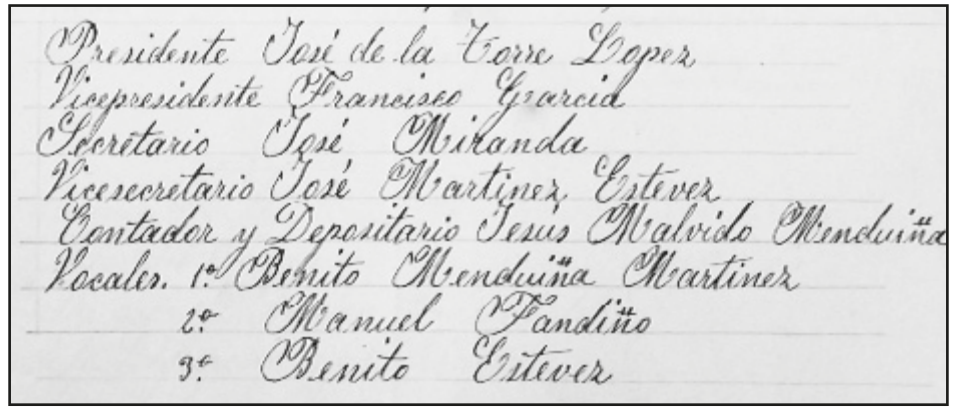 Presidente José de la Torre Lopez
Vicepresidente Francisco Garcia
Secretario José Miranda
Vicesecretario José Martinez Estevez
Contador y Depositario Jesús Malvido Menduiña
Vocales. 1º Benito Menduiña Martinez
2º Manuel Fandiño
3º Benito Estevez